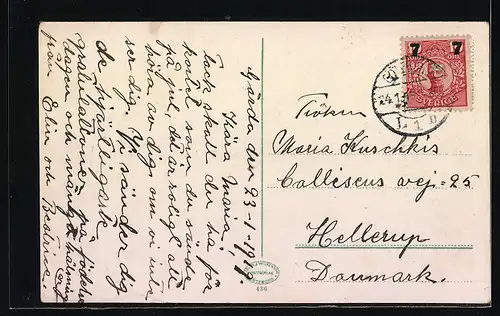 Gärda den 23-1-1919
Kära Maria!
Tack skall du ha för
kortet som du sände
på jul, det är roligt att
höra av dig om vi inte
ser dig. Vi sänder dig
de hjärtligaste
gratulationer på födelse
dagen och många
från Elin och
Fröken
Maria Kuschkis
Calliseus vej-25
Hellerup
Danmark.
7 7
SVERIGE
436